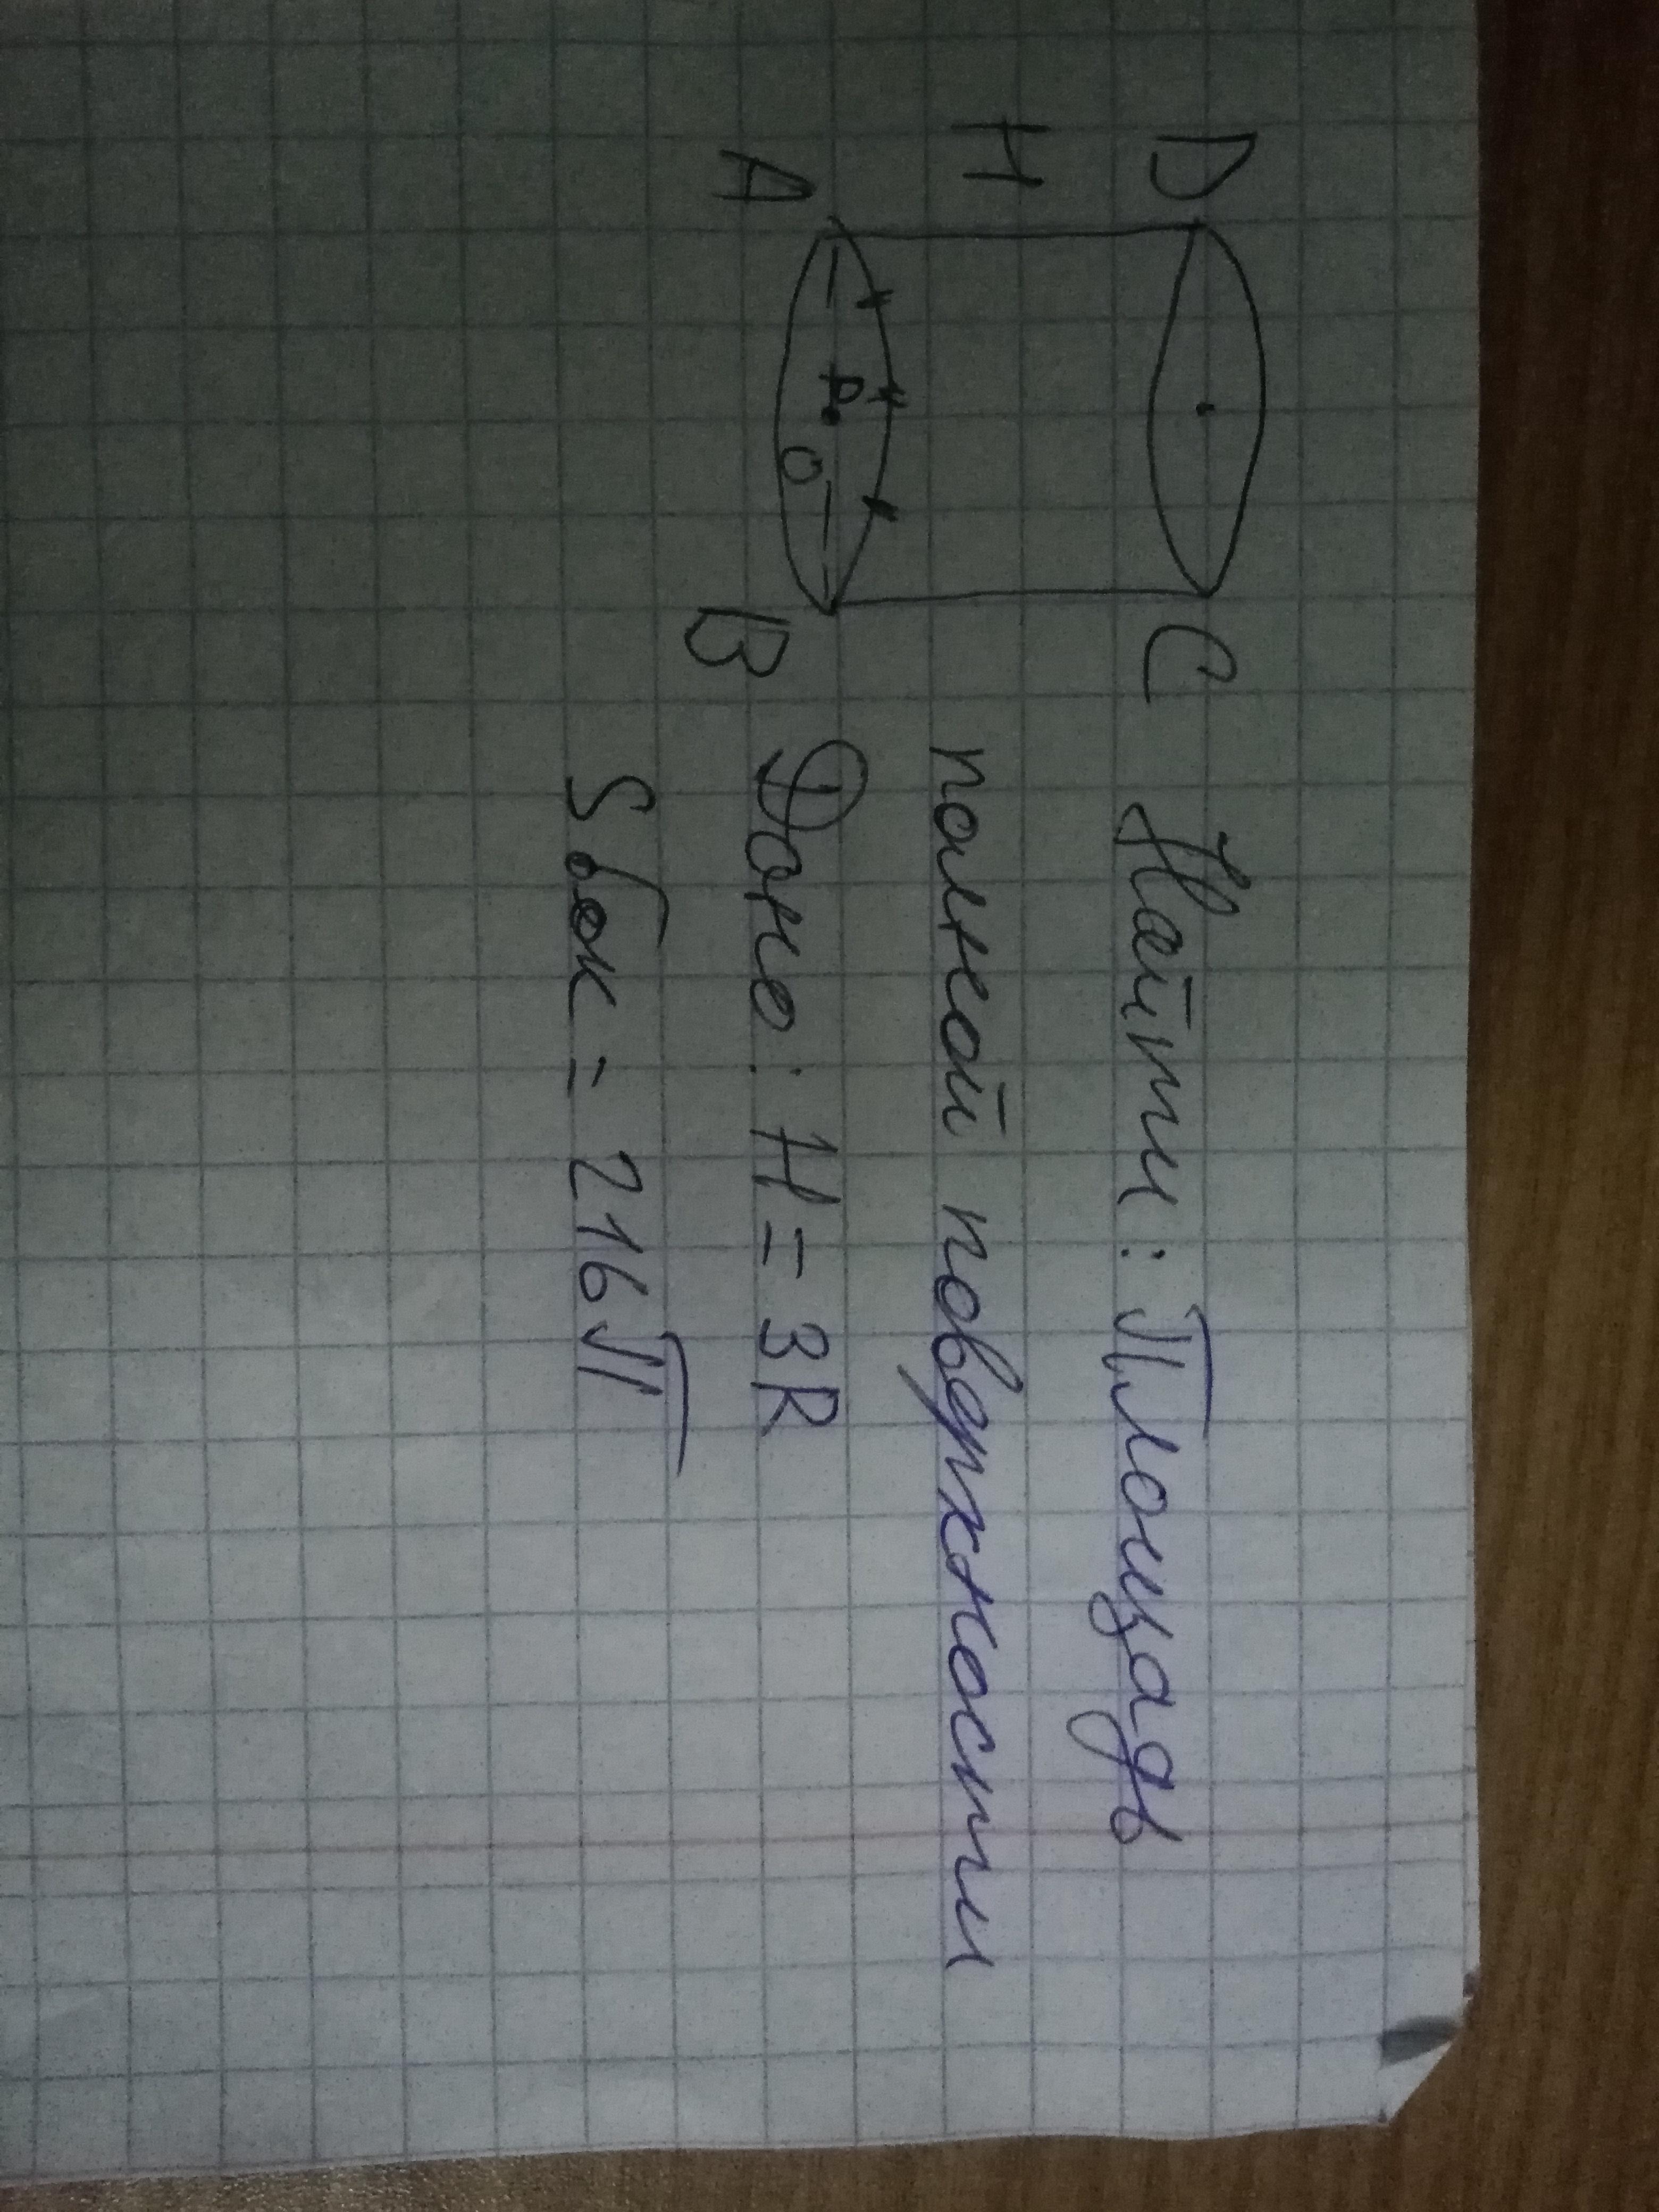 D
C
H
A
P
O
B
Найти: Площадь
полной поверхности
Дано: H = 3R
Sбок = 216π